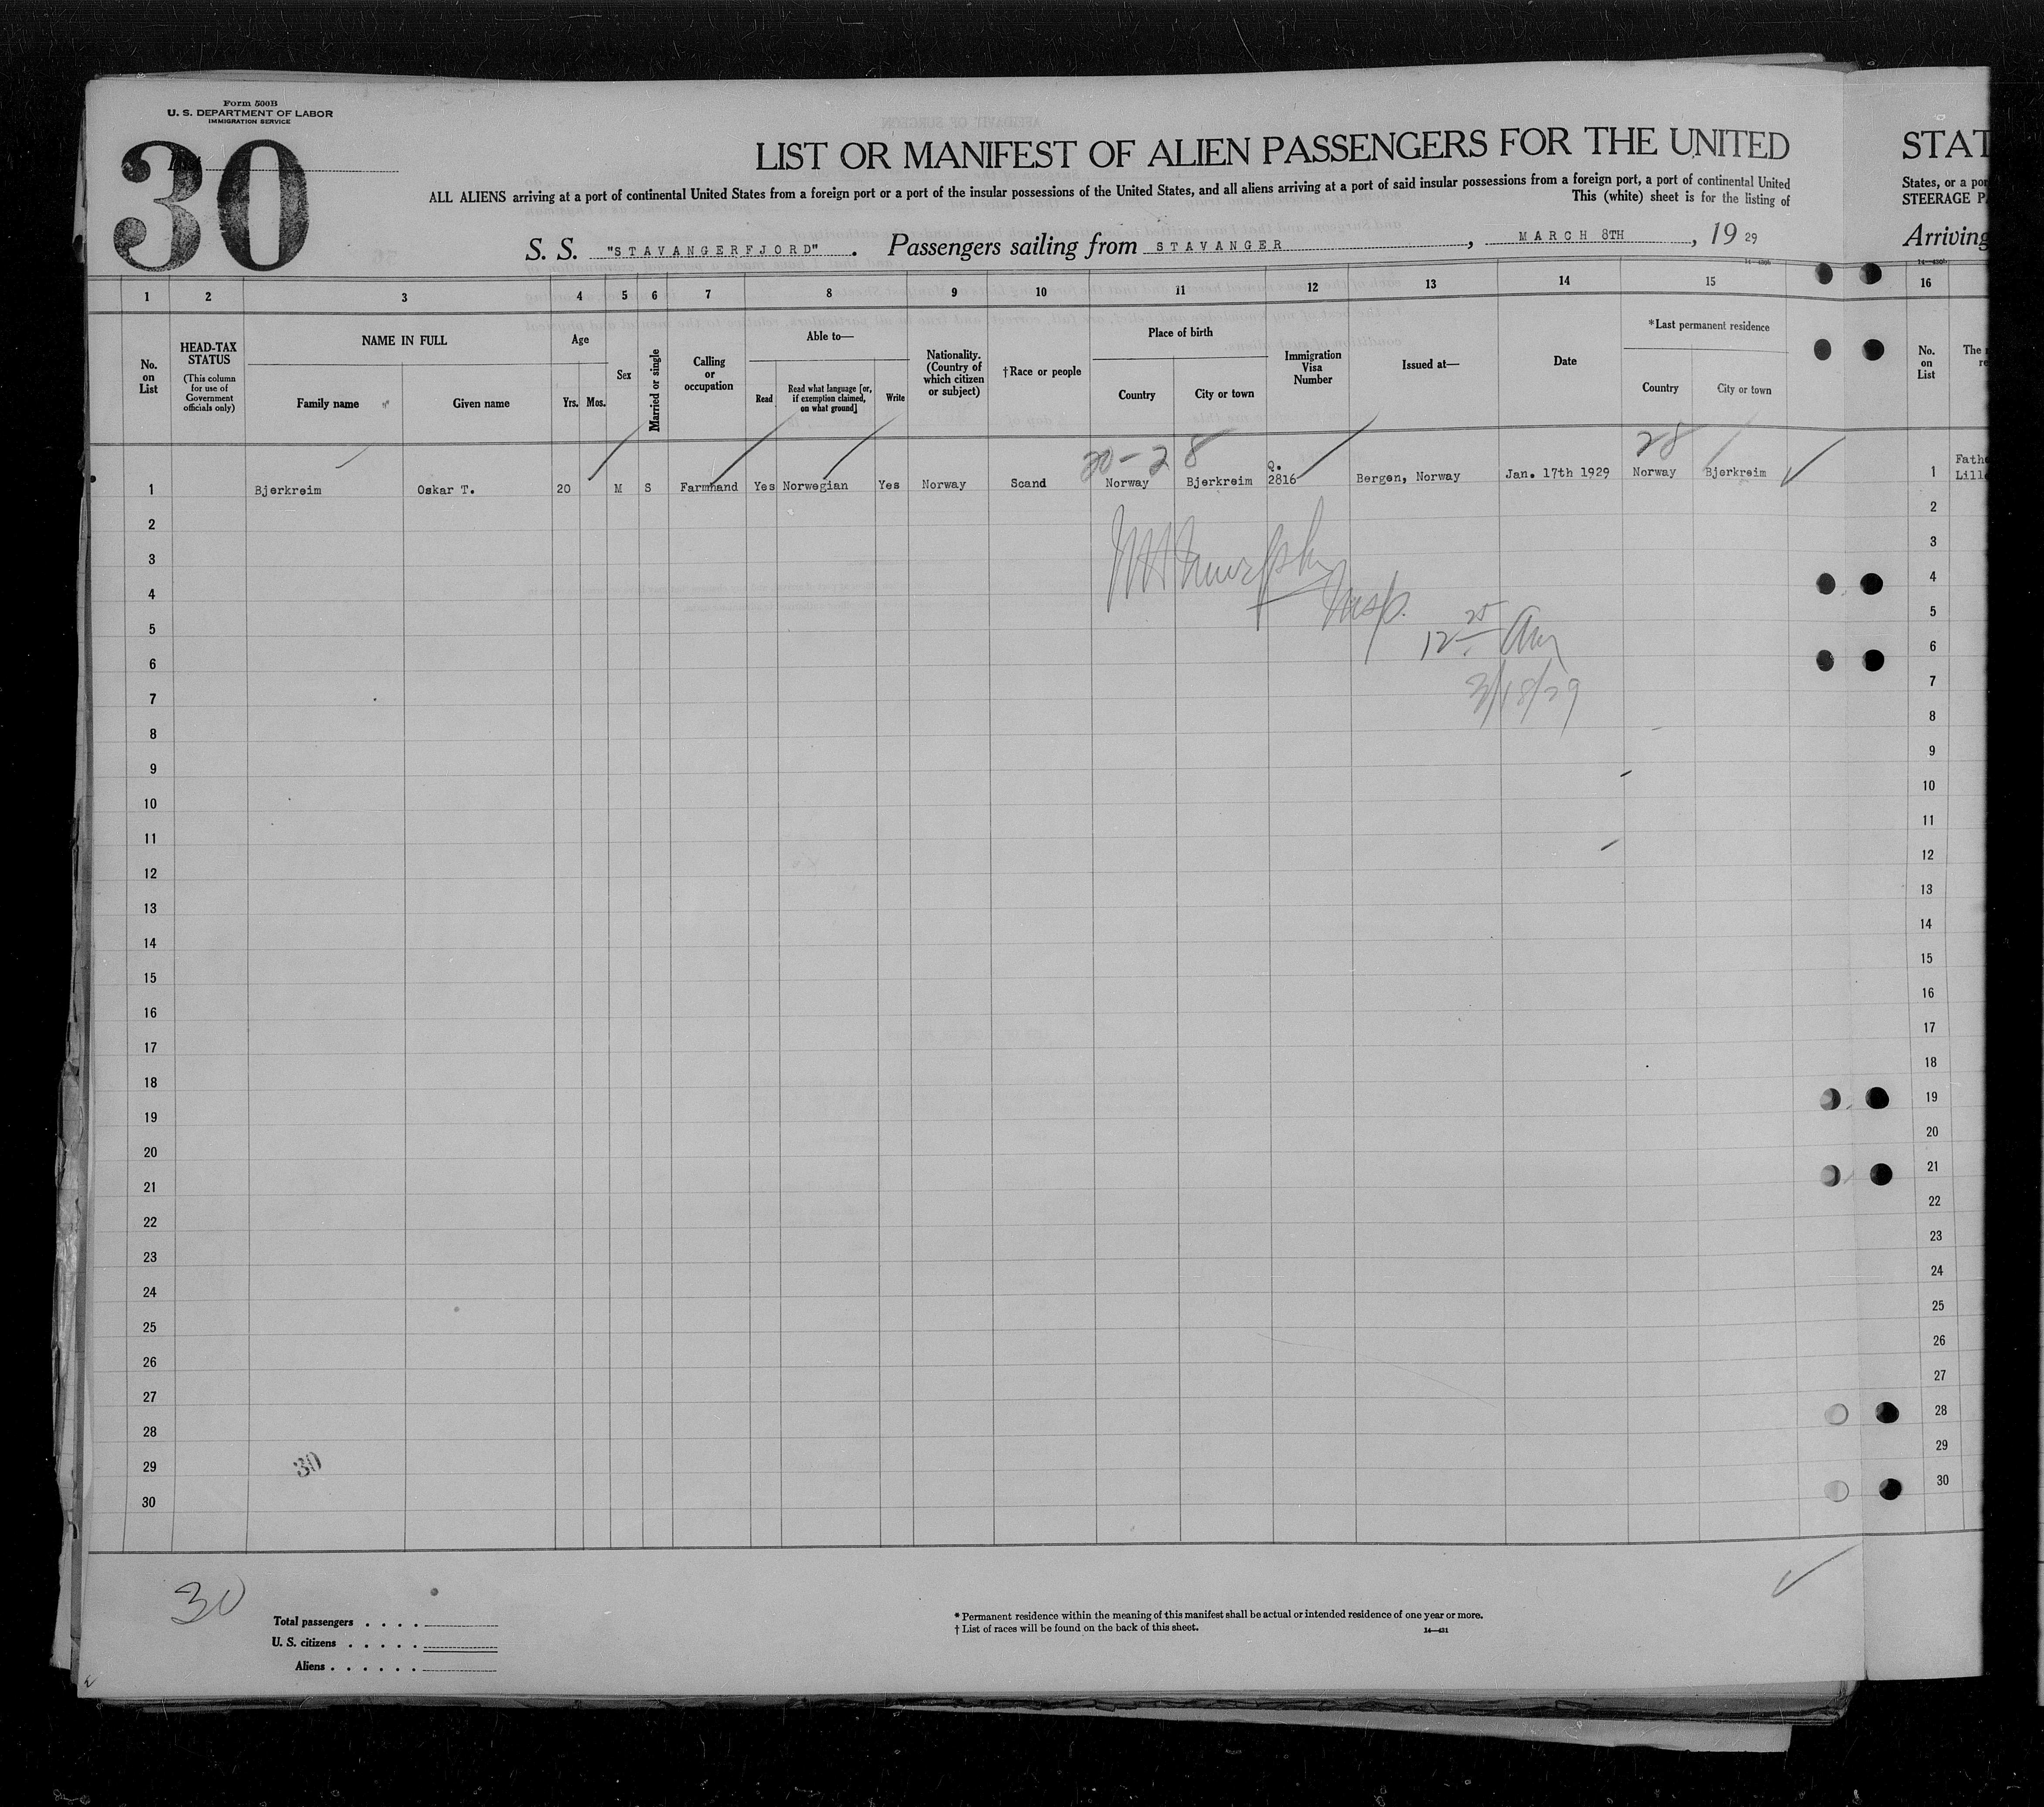 Form 500B
U. S. DEPARTMENT OF LABOR
IMMIGRATION SERVICE
30
LIST OR MANIFEST OF ALIEN PASSENGERS FOR THE UNITED
ALL ALIENS arriving at a port of continental United States from a foreign port or a port of the insular possessions of the United States, and all aliens arriving at a port of said insular possessions from a foreign port, a port of continental United
This (white) sheet is for the listing of
S. S. "STAVANGERFJORD". Passengers sailing from STAVANGER, MARCH 8TH, 19 29
STAT
States, or a por
STEERAGE P
Arriving
1 2 3 4 5 6 7 8 9 10 11 12 13 14 15 16
No. on List
HEAD-TAX STATUS
(This column for use of Government officials only)
NAME IN FULL
Family name
Given name
Age
Yrs. Mos.
Sex
Married or single
Calling or occupation
Able to—
Read
Read what language [or, if exemption claimed, on what ground]
Write
Nationality. (Country of which citizen or subject)
†Race or people
Place of birth
Country
City or town
Immigration Visa Number
Issued at—
Date
*Last permanent residence
Country
City or town
No. on List
The
20-28
28
1 Bjerkreim Oskar T. 20 M S Farmhand Yes Norwegian Yes Norway Scand Norway Bjerkreim Q. 2816 Bergen, Norway Jan. 17th 1929 Norway Bjerkreim 1 Fath
Lill
2 2
3 3
4 4
5 5
6 6
7 7
8 8
9 9
10 10
11 11
12 12
13 13
14 14
15 15
16 16
17 17
18 18
19 19
20 20
21 21
22 22
23 23
24 24
25 25
26 26
27 27
28 28
29 29
30 30
Murphy
Insp.
12 25 am
3/18/29
30
30
Total passengers . . . .
U. S. citizens . . . . .
Aliens . . . . . .
* Permanent residence within the meaning of this manifest shall be actual or intended residence of one year or more.
† List of races will be found on the back of this sheet.
14—431